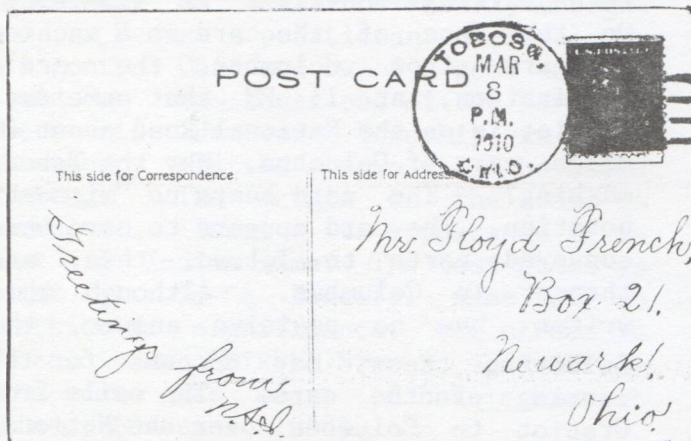 POST CARD
TOBOSO,
MAR
8
P.M.
1910
OHIO.
This side for Correspondence
This side for Address
Greetings
from
Mr. Floyd French,
Box 21.
Newark!
Ohio.